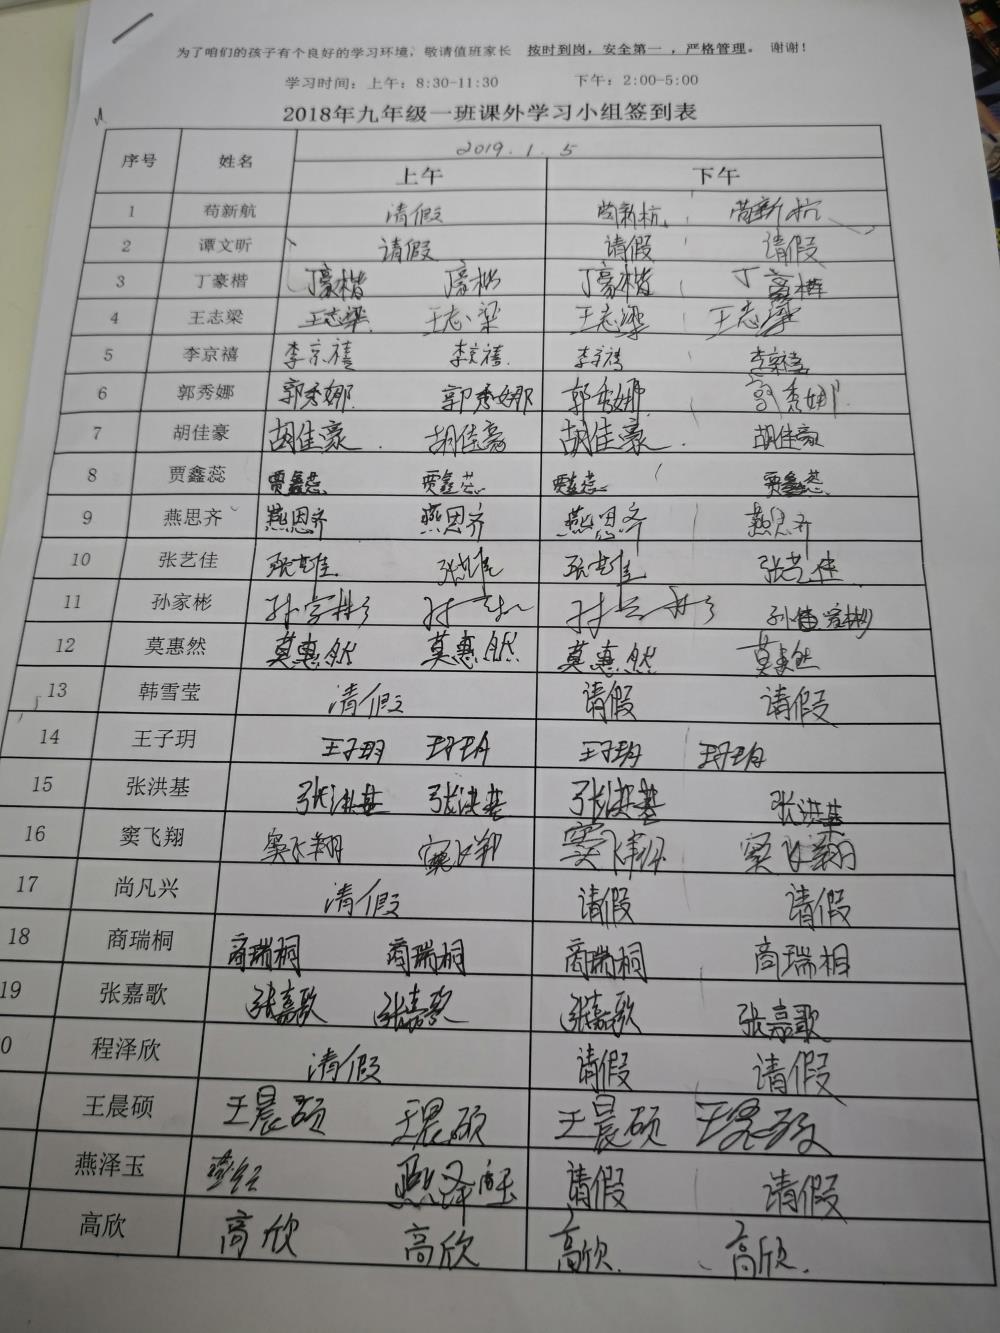 为了咱们的孩子有个良好的学习环境，敬请值班家长 按时到岗，安全第一，严格管理。谢谢！
学习时间：上午：8:30-11:30 下午：2:00-5:00
2018年九年级一班课外学习小组签到表
序号 姓名 2019.1.5
上午 下午
1 荀新航 请假 荀新杭 荀新杭
2 谭文昕 请假 请假 请假
3 丁豪楷 丁豪楷 豪楷 丁豪楷 丁豪楷
4 王志梁 王志梁 王志梁 王志梁 王志梁
5 李京禧 李京禧 李京禧 李京禧 李京禧
6 郭秀娜 郭秀娜 郭秀娜 郭秀娜 郭秀娜
7 胡佳豪 胡佳豪 胡佳豪 胡佳豪 胡佳豪
8 贾鑫蕊 贾鑫蕊 贾鑫蕊 贾鑫蕊 贾鑫蕊
9 燕思齐 燕思齐 燕思齐 燕思齐 燕思齐
10 张艺佳 张艺佳 张艺佳 张艺佳 张艺佳
11 孙家彬 孙家彬
12 莫惠然 莫惠然 莫惠然 莫惠然 莫惠然
13 韩雪莹 请假 请假 请假
14 王子玥 王子玥 王子玥 王子玥 王子玥
15 张洪基 张洪基 张洪基 张洪基 张洪基
16 窦飞翔 窦飞翔 窦飞翔 窦飞翔 窦飞翔
17 尚凡兴 请假 请假 请假
18 商瑞桐 商瑞桐 商瑞桐 商瑞桐 商瑞相
19 张嘉歌 张嘉歌 张嘉歌 张嘉歌 张嘉歌
0 程泽欣 请假 请假 请假
王晨硕 王晨硕 王晨硕 王晨硕 王晨硕
燕泽玉 燕泽玉 请假 请假
高欣 高欣 高欣 高欣 高欣